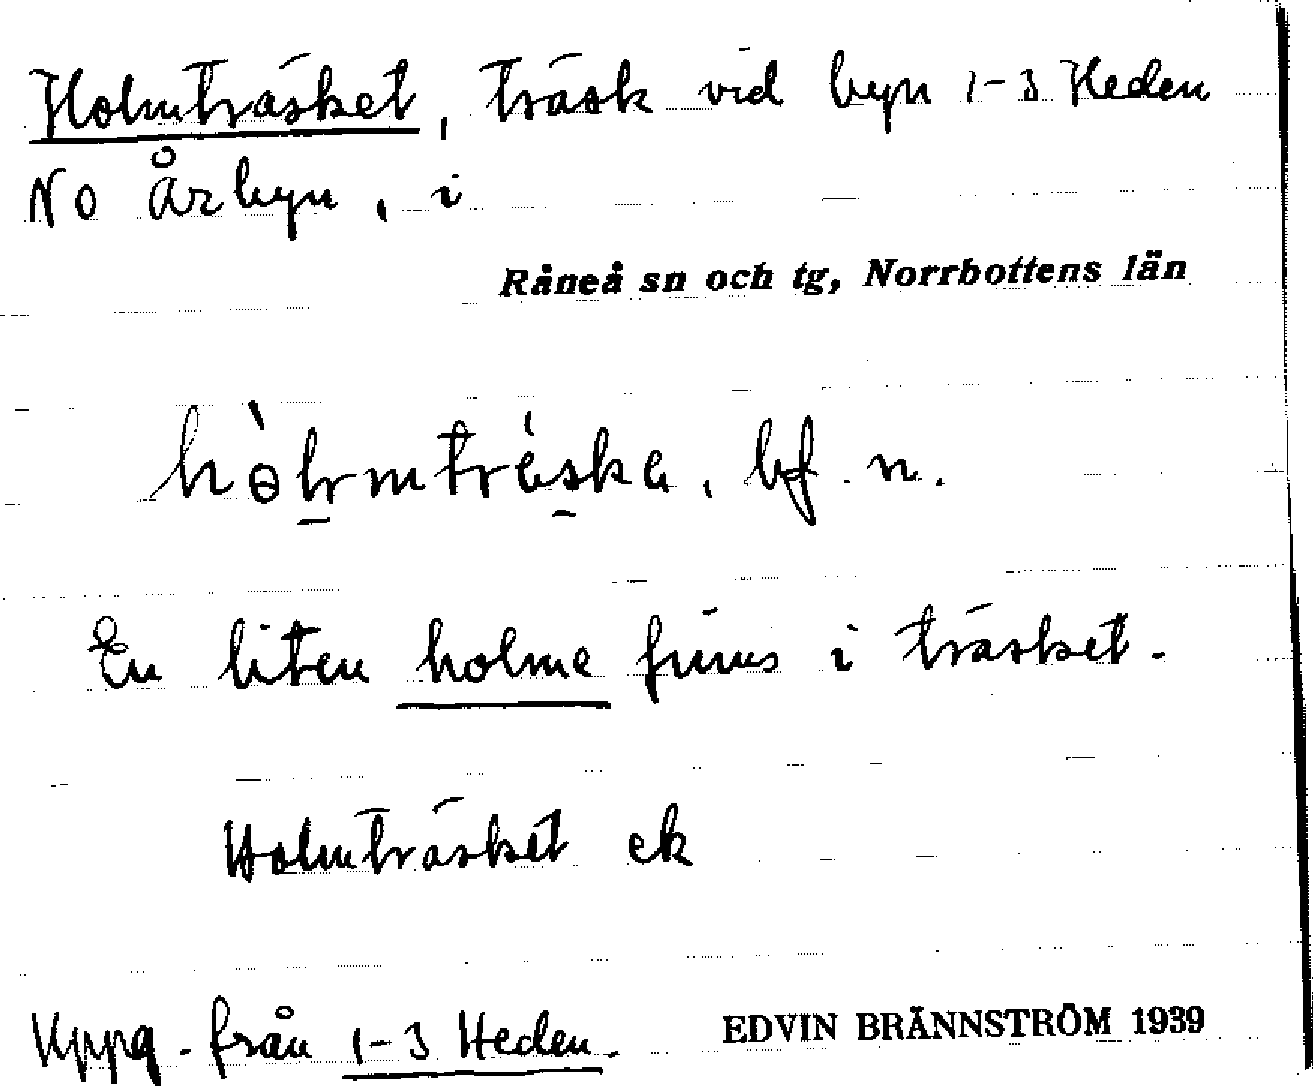 Holmträsket, träsk vid byn 1-3 Heden
No Årbyn, i
Råneå sn och tg, Norrbottens län
bf. n.
En liten holme finns i träsket.
Holmträsket ek
Uppg. från 1-3 Heden.
EDVIN BRÄNNSTRÖM 1939